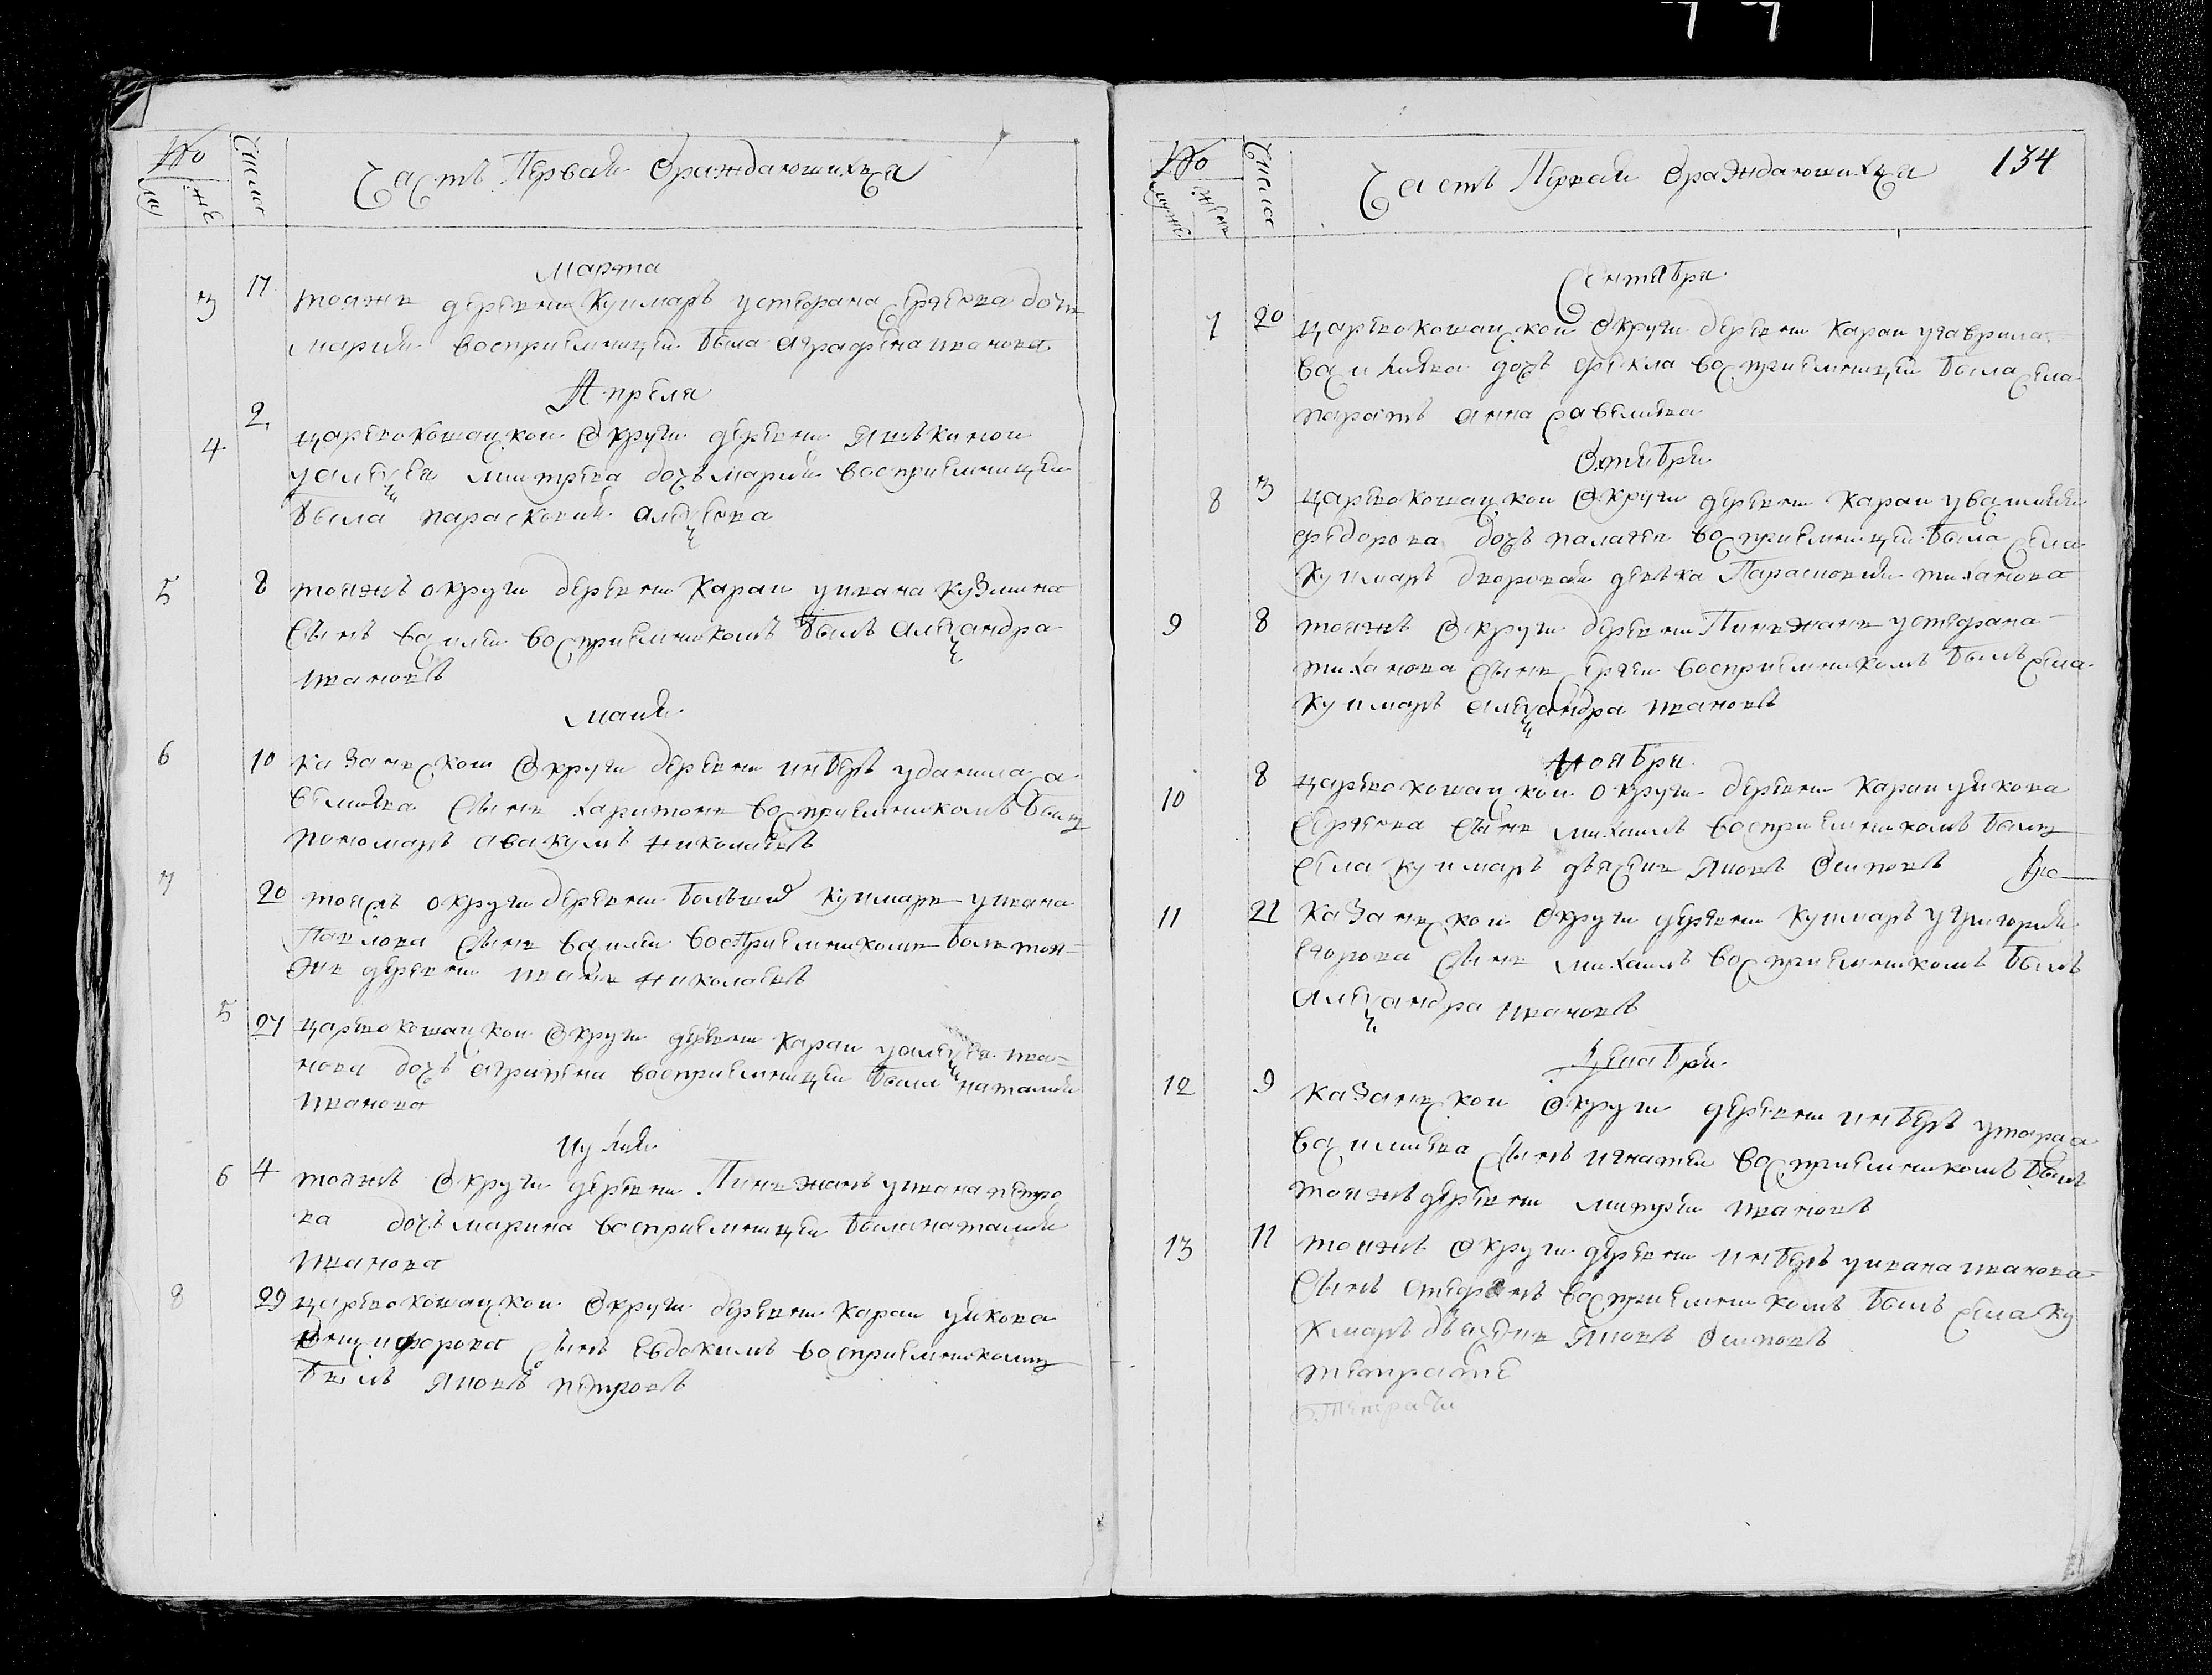 No
Числа
Часть Первая ораждающихся
м
же
Марта
3 17 тояже деревни Куимаръ устефана сергеева дочь
мария восприемницей была аграфена иванова
Апреля
4 2 царевококшацкой округи деревни
уалексея митрева дочь мария восприемницей
была парасковия алексеева
5 8 тояжъ округи деревни Караи уивана кузмина
сынъ василей восприемникомъ былъ александра
ивановъ
Маия
6 10 казанской округи деревни инберъ уданила са
велиева сынъ харитонъ восприемникомъ былъ
пономарь авакумъ николаевъ
7 20 тояжъ округи деревни большей куимаръ уивана
Павлова сынъ василей восприемникомъ былъ тоя=
же деревни иванъ николаевъ
5 27 царевококшацкой округи деревни Караи уалексея ива=
нова дочь агрипена восприемницей была наталия
иванова
Иулия
6 4 тояжъ округи деревни Пинежанъ уивана петро
ва дочь марина восприемницей была наталия
иванова
8 29 царевококшацкой округи деревни караи уякова
никифорова сынъ Евдокимъ восприемникомъ
былъ яковъ петровъ
No
Числа
Часть Первая ораждающихся 134
муже
жен
Сентября
7 20 царевококшацкой округи деревни Караи угаврила
василиева дочь фекла восприемницей была села
паратъ анна савелиева
Октября
8 3 царевококшацкой округи деревни Караи увасилия
федорова дочь палагея восприемницей была села
куимаръ дворовая девка Парасковия тиханова
9 8 тояжъ округи деревни Пинежанъ устефана
тиханова сынъ сергей восприемникомъ былъ села
Куимаръ александра ивановъ
Ноября
10 8 царевококшацкой округи деревни Караи уякова
сергеева сынъ михаилъ восприемникомъ былъ
села куимаръ дьячекъ яковъ осиповъ
11 21 Казанской округи деревни куимаръ угригория
егорова сынъ михаилъ восприемникомъ былъ
александра ивановъ
Декабря
12 9 Казанской округи деревни инберъ утараса
василиева сынъ игнатей восприемникомъ былъ
тояжъ деревни митрей ивановъ
13 11 тояжъ округи деревни инберъ уивана иванова
сынъ стефанъ восприемникомъ былъ села ку
имаръ дьячекъ яковъ осиповъ